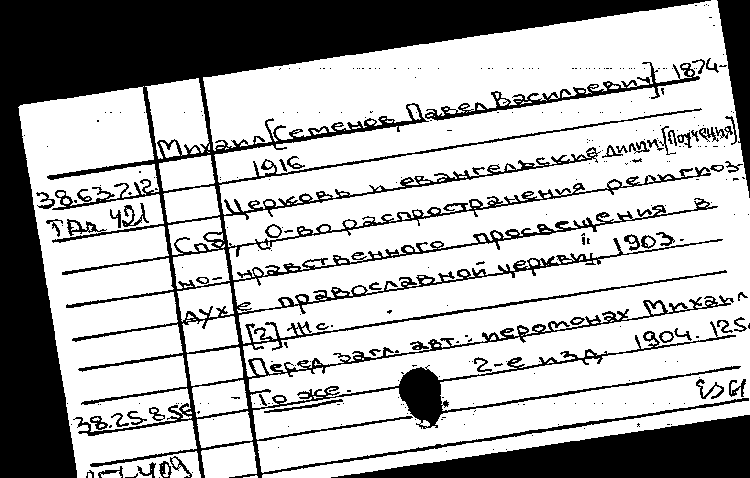 Михаил [Семенов, Павел Васильевич], 1874-
1916
38.63.7.12
Церковь и евангельские лилии. [Поучения]
Спб., "О-во распространения религиоз-
но-нравственного просвещения в
духе православной церкви", 1903.
[2], III с.
Перед загл. авт.: иеромонах Михаил
То же. 2-е изд. 1904. 125с
38.25.8.56.